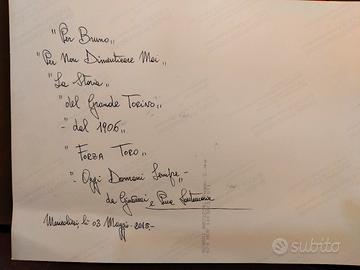 "Per Bruno,,
"Per Non Dimenticare Mai,,
"La Storia,,
"del Grande Torino,,
-"dal 1906,,
"FORZA TORO,,
"-Oggi Domani Sempre,-
da e Pina
li 03 Maggio 2015,-
subito